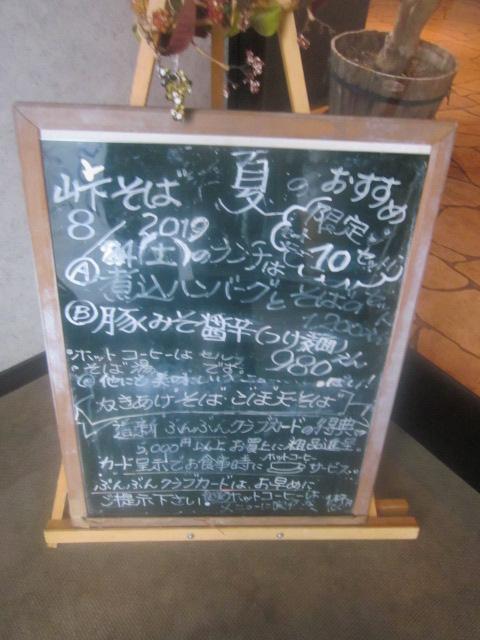 峠そば 夏のおすすめ
8/24(土)のランチは 2019 限定 10セット
Ⓐ煮込ハンバーグとそばの
Ⓑ豚みそ醤辛(つけ麺)
980
ホットコーヒーは セルフ
そば湯 です。
他にも美味しい
かきあげそば ごぼ天そば
ぶんぶんクラブカードの特典
5,000円以上お買上に粗品進呈
カード呈示でお食事時に ホットコーヒー サービス
ぶんぶんクラブカードは、お早めに
ご提示下さい。 ホットコーヒーは